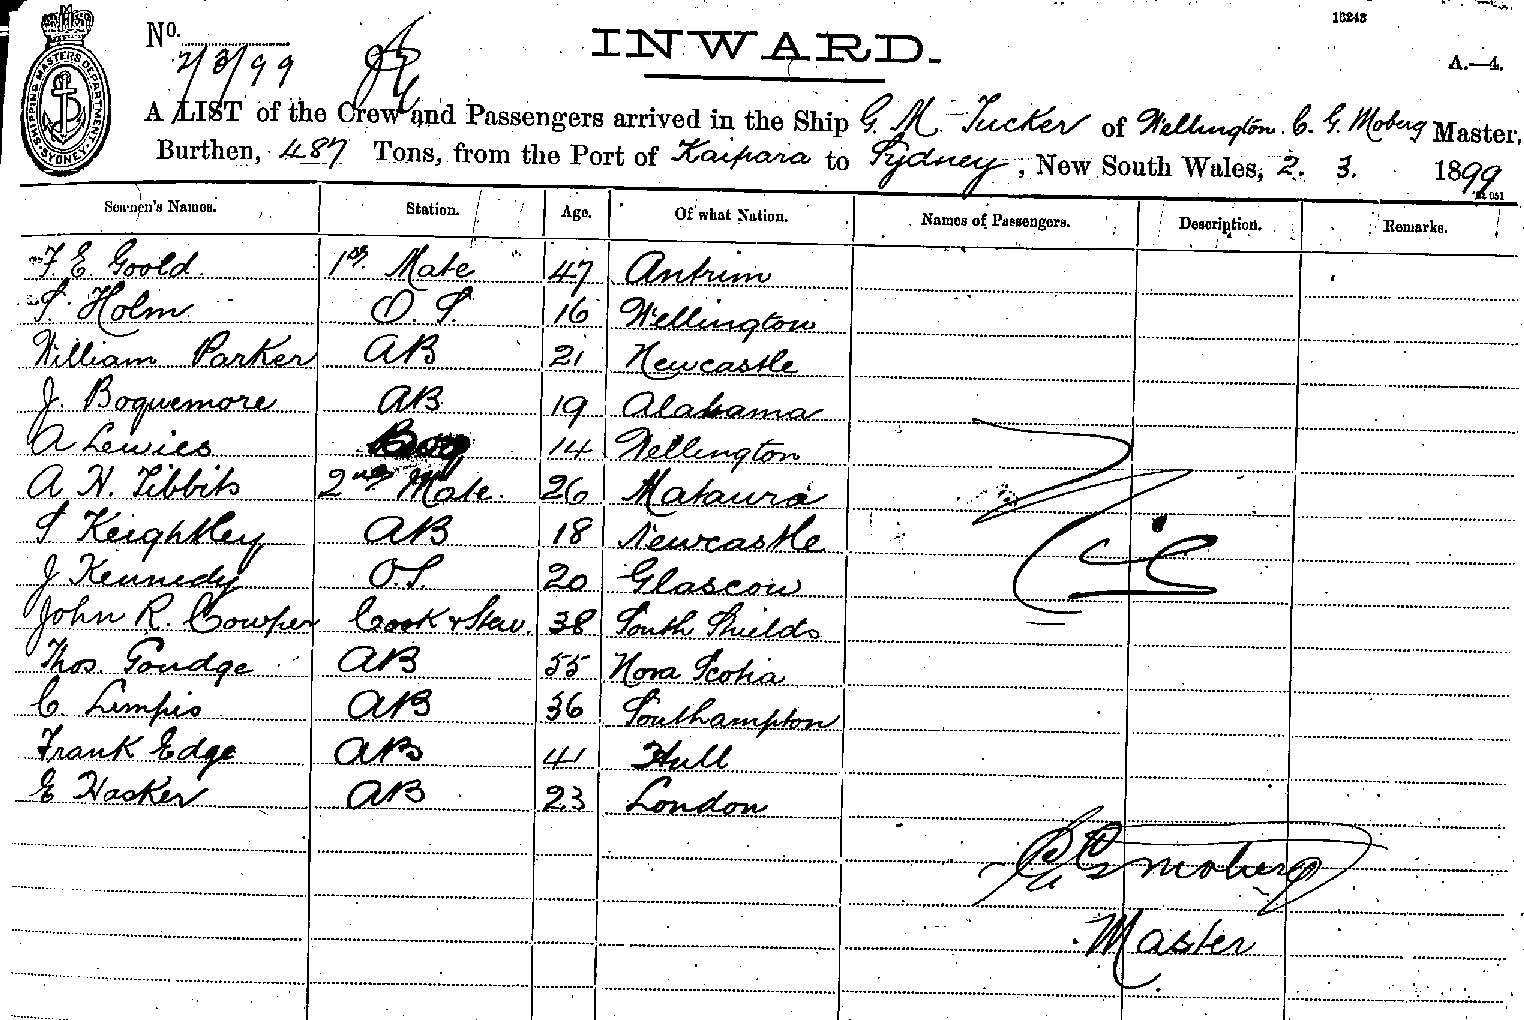 13243
No.
INWARD.
2/3/99
A.—4.
SHIPPING MASTERS DEPARTMENT SYDNEY
A LIST of the Crew and Passengers arrived in the Ship G. M. Tucker of Wellington. C. G. Moberg Master,
Burthen, 487 Tons, from the Port of Kaipara to Sydney, New South Wales, 2. 3. 1899
Seamen's Names. Station. Age. Of what Nation. Names of Passengers. Description. Remarks.
F E Goold 1st Mate 47 Antrim
S. Holm O. S. 16 Wellington
William Parker AB 21 Newcastle
J. Boquemore AB 19 Alabama
A Lewies Boy 14 Wellington
A H. Tibbits 2nd Mate. 26 Mataura
S Keightley AB 18 Newcastle
J Kennedy O.S. 20 Glascow
John R. Cowper Cook & Stew. 38 South Shields
Thos. Goudge AB 55 Nova Scotia
C. Limpis AB 36 Southampton
Frank Edge AB 41 Hull
E Hasker AB 23 London
Nil
C G Moberg
Master